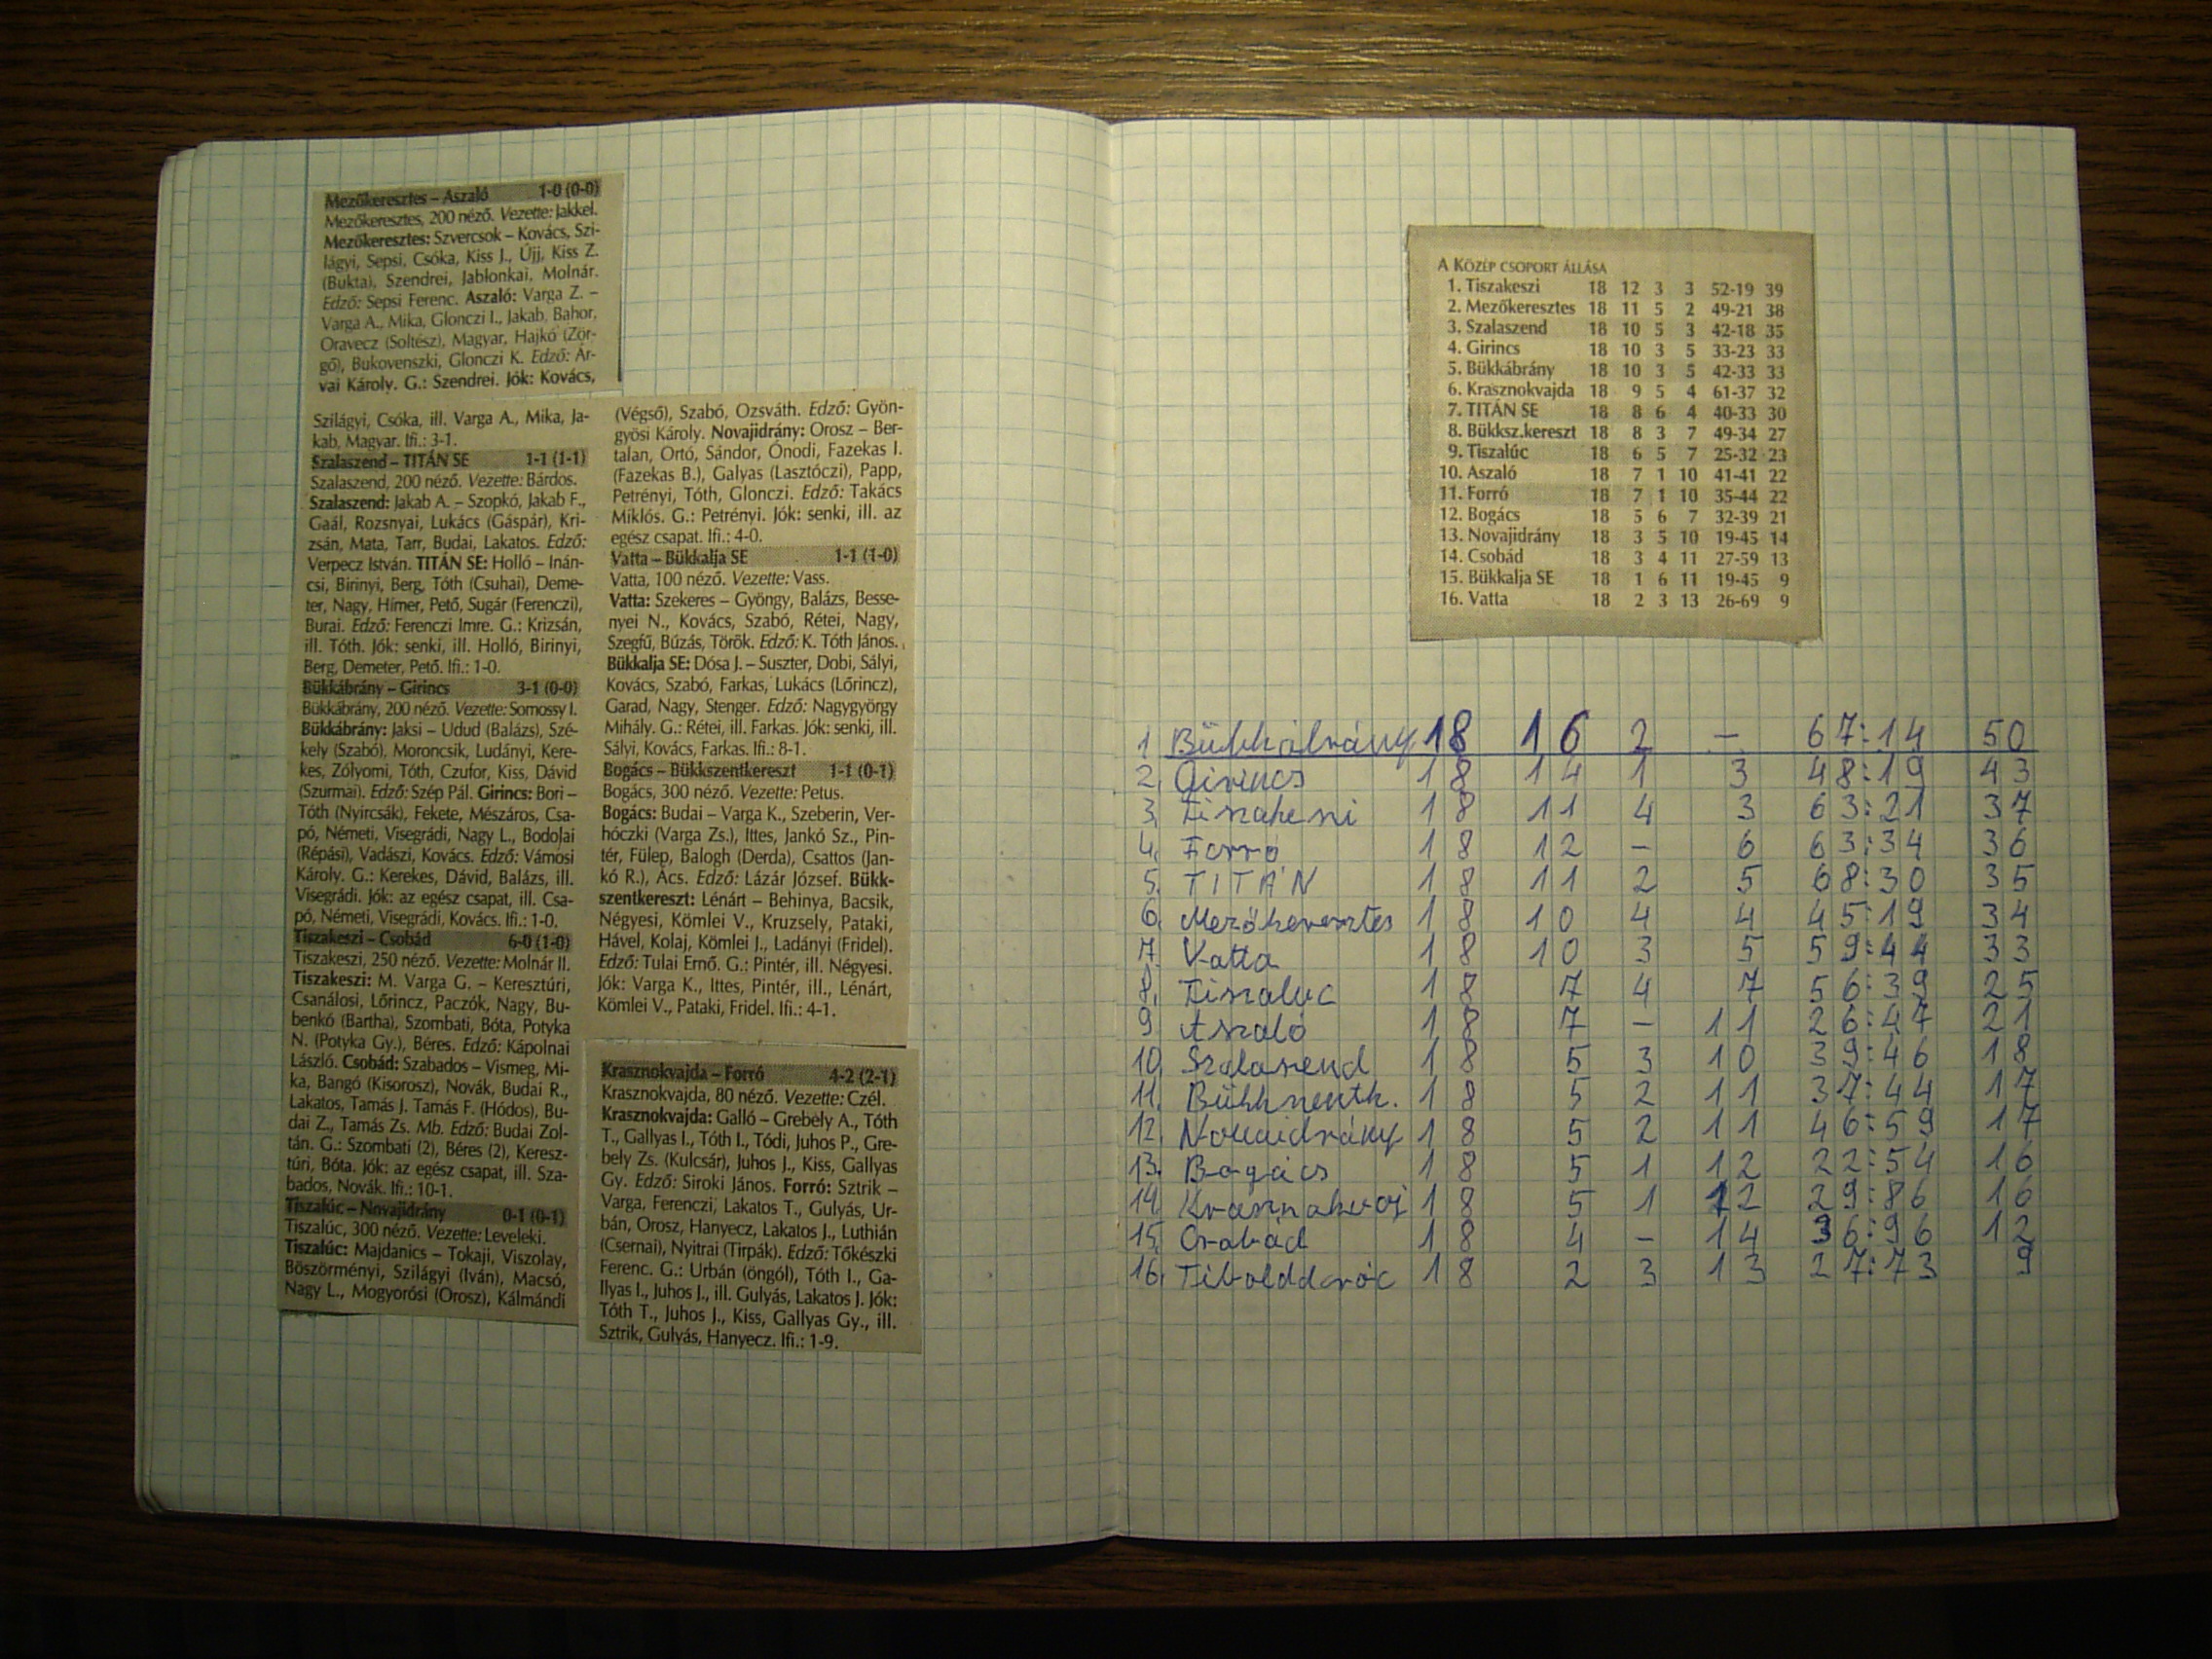 Mezőkeresztes – Aszaló 1-0 (0-0)
Mezőkeresztes, 200 néző. Vezette: Jakkel.
Mezőkeresztes: Szvercsok – Kovács, Szi-
lágyi, Sepsi, Csóka, Kiss J., Újj, Kiss Z.
(Bukta), Szendrei, Jablonkai, Molnár.
Edző: Sepsi Ferenc. Aszaló: Varga Z. –
Varga A., Mika, Glonczi I., Jakab, Bahor,
Oravecz (Soltész), Magyar, Hajkó (Zör-
gő), Bukovenszki, Glonczi K. Edző: Ár-
vai Károly. G.: Szendrei. Jók: Kovács,
Szilágyi, Csóka, ill. Varga A., Mika, Ja-
kab, Magyar. Ifi.: 3-1.
Szalaszend – TITÁN SE 1-1 (1-1)
Szalaszend, 200 néző. Vezette: Bárdos.
Szalaszend: Jakab A. – Szopkó, Jakab F.,
Gaál, Rozsnyai, Lukács (Gáspár), Kri-
zsán, Mata, Tarr, Budai, Lakatos. Edző:
Verpecz István. TITÁN SE: Holló – Inán-
csi, Birinyi, Berg, Tóth (Csuhai), Deme-
ter, Nagy, Hímer, Pető, Sugár (Ferenczi),
Burai. Edző: Ferenczi Imre. G.: Krizsán,
ill. Tóth. Jók: senki, ill. Holló, Birinyi,
Berg, Demeter, Pető. Ifi.: 1-0.
Bükkábrány – Girincs 3-1 (0-0)
Bükkábrány, 200 néző. Vezette: Somossy I.
Bükkábrány: Jaksi – Udud (Balázs), Szé-
kely (Szabó), Moroncsik, Ludányi, Kere-
kes, Zólyomi, Tóth, Czufor, Kiss, Dávid
(Szurmai). Edző: Szép Pál. Girincs: Bori –
Tóth (Nyircsák), Fekete, Mészáros, Csa-
pó, Németi, Visegrádi, Nagy L., Bodolai
(Répási), Vadászi, Kovács. Edző: Vámosi
Károly. G.: Kerekes, Dávid, Balázs, ill.
Visegrádi. Jók: az egész csapat, ill. Csa-
pó, Németi, Visegrádi, Kovács. Ifi.: 1-0.
Tiszakeszi – Csobád 6-0 (1-0)
Tiszakeszi, 250 néző. Vezette: Molnár II.
Tiszakeszi: M. Varga G. – Keresztúri,
Csanálosi, Lőrincz, Paczók, Nagy, Bu-
benkó (Bartha), Szombati, Bóta, Potyka
N. (Potyka Gy.), Béres. Edző: Kápolnai
László. Csobád: Szabados – Vismeg, Mi-
ka, Bangó (Kisorosz), Novák, Budai R.,
Lakatos, Tamás J. Tamás F. (Hódos), Bu-
dai Z., Tamás Zs. Mb. Edző: Budai Zol-
tán. G.: Szombati (2), Béres (2), Keresz-
túri, Bóta. Jók: az egész csapat, ill. Sza-
bados, Novák. Ifi.: 10-1.
Tiszalúc – Novajidrány 0-1 (0-1)
Tiszalúc, 300 néző. Vezette: Leveleki.
Tiszalúc: Majdanics – Tokaji, Viszolay,
Böszörményi, Szilágyi (Iván), Macsó,
Nagy L., Mogyorósi (Orosz), Kálmándi
(Végső), Szabó, Ozsváth. Edző: Gyön-
gyösi Károly. Novajidrány: Orosz – Ber-
talan, Ortó, Sándor, Ónodi, Fazekas I.
(Fazekas B.), Galyas (Lasztóczi), Papp,
Petrényi, Tóth, Glonczi. Edző: Takács
Miklós. G.: Petrényi. Jók: senki, ill. az
egész csapat. Ifi.: 4-0.
Vatta – Bükkalja SE 1-1 (1-0)
Vatta, 100 néző. Vezette: Vass.
Vatta: Szekeres – Gyöngy, Balázs, Besse-
nyei N., Kovács, Szabó, Rétei, Nagy,
Szegfű, Búzás, Török. Edző: K. Tóth János.
Bükkalja SE: Dósa J. – Suszter, Dobi, Sályi,
Kovács, Szabó, Farkas, Lukács (Lőrincz),
Garad, Nagy, Stenger. Edző: Nagygyörgy
Mihály. G.: Rétei, ill. Farkas. Jók: senki, ill.
Sályi, Kovács, Farkas. Ifi.: 8-1.
Bogács – Bükkszentkereszt 1-1 (0-1)
Bogács, 300 néző. Vezette: Petus.
Bogács: Budai – Varga K., Szeberin, Ver-
hóczki (Varga Zs.), Ittes, Jankó Sz., Pin-
tér, Fülep, Balogh (Derda), Csattos (Jan-
kó R.), Ács. Edző: Lázár József. Bükk-
szentkereszt: Lénárt – Behinya, Bacsik,
Négyesi, Kömlei V., Kruzsely, Pataki,
Hável, Kolaj, Kömlei J., Ladányi (Fridel).
Edző: Tulai Ernő. G.: Pintér, ill. Négyesi.
Jók: Varga K., Ittes, Pintér, ill., Lénárt,
Kömlei V., Pataki, Fridel. Ifi.: 4-1.
Krasznokvajda – Forró 4-2 (2-1)
Krasznokvajda, 80 néző. Vezette: Czél.
Krasznokvajda: Galló – Grebely A., Tóth
T., Gallyas I., Tóth I., Tódi, Juhos P., Gre-
bely Zs. (Kulcsár), Juhos J., Kiss, Gallyas
Gy. Edző: Siroki János. Forró: Sztrik –
Varga, Ferenczi, Lakatos T., Gulyás, Ur-
bán, Orosz, Hanyecz, Lakatos J., Luthián
(Csernai), Nyitrai (Tirpák). Edző: Tőkészki
Ferenc. G.: Urbán (öngól), Tóth I., Ga-
llyas I., Juhos J., ill. Gulyás, Lakatos J. Jók:
Tóth T., Juhos J., Kiss, Gallyas Gy., ill.
Sztrik, Gulyás, Hanyecz. Ifi.: 1-9.
A KÖZÉP CSOPORT ÁLLÁSA
1. Tiszakeszi 18 12 3 3 52-19 39
2. Mezőkeresztes 18 11 5 2 49-21 38
3. Szalaszend 18 10 5 3 42-18 35
4. Girincs 18 10 3 5 33-23 33
5. Bükkábrány 18 10 3 5 42-33 33
6. Krasznokvajda 18 9 5 4 61-37 32
7. TITÁN SE 18 8 6 4 40-33 30
8. Bükksz.kereszt 18 8 3 7 49-34 27
9. Tiszalúc 18 6 5 7 25-32 23
10. Aszaló 18 7 1 10 41-41 22
11. Forró 18 7 1 10 35-44 22
12. Bogács 18 5 6 7 32-39 21
13. Novajidrány 18 3 5 10 19-45 14
14. Csobád 18 3 4 11 27-59 13
15. Bükkalja SE 18 1 6 11 19-45 9
16. Vatta 18 2 3 13 26-69 9
1 Bükkábrány 18 16 2 – 67:14 50
2. Girincs 18 14 1 3 48:19 43
3. Tiszakeszi 18 11 4 3 63:21 37
4. Forró 18 12 – 6 63:34 36
5. TITÁN 18 11 2 5 68:30 35
6. Mezőkeresztes 18 10 4 4 45:19 34
7. Vatta 18 10 3 5 59:44 33
8. Tiszaluc 18 7 4 7 56:39 25
9 Aszaló 18 7 – 11 26:47 21
10. Szalasend 18 5 3 10 39:46 18
11. Bükkszentk. 18 5 2 11 37:44 17
12. Novaidrány 18 5 2 11 46:59 17
13. Bogács 18 5 1 12 22:54 16
14. Krasznokvaj 18 5 1 12 29:86 16
15. Csobád 18 4 – 14 36:96 12
16. Tibolddaróc 18 2 3 13 27:73 9